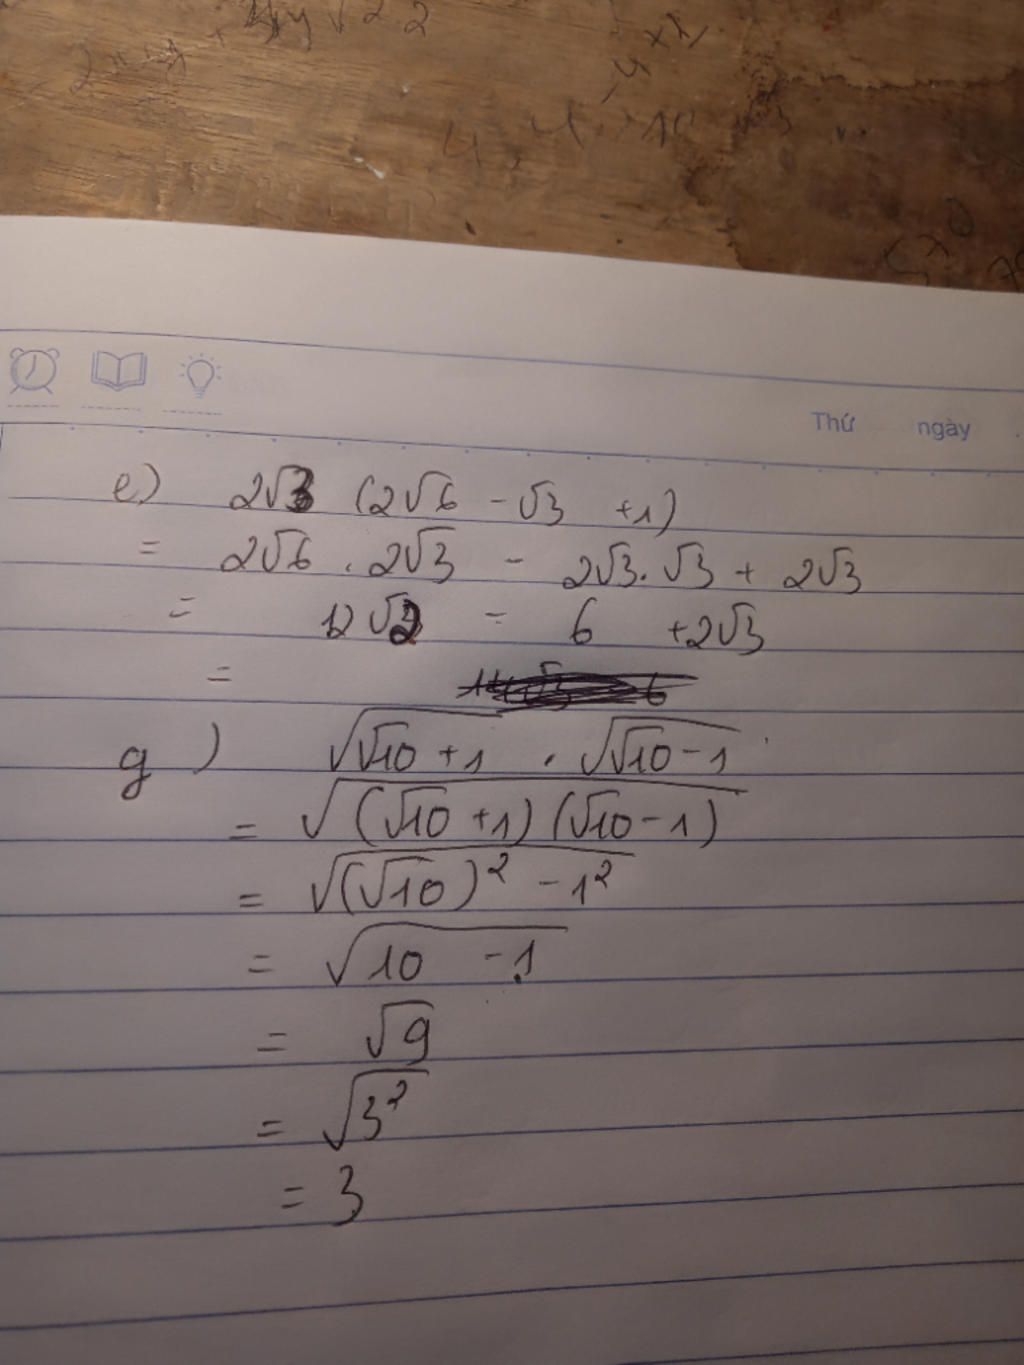 Thứ ngày
e) 2√3 (2√6 - √3 +1)
= 2√6 . 2√3 - 2√3. √3 + 2√3
= 12√2 - 6 +2√3
=
g) √(√10 + 1) . √(√10 - 1)
= √((√10 +1) (√10 - 1))
= √((√10)² - 1²)
= √(10 - 1)
= √9
= √(3²)
= 3